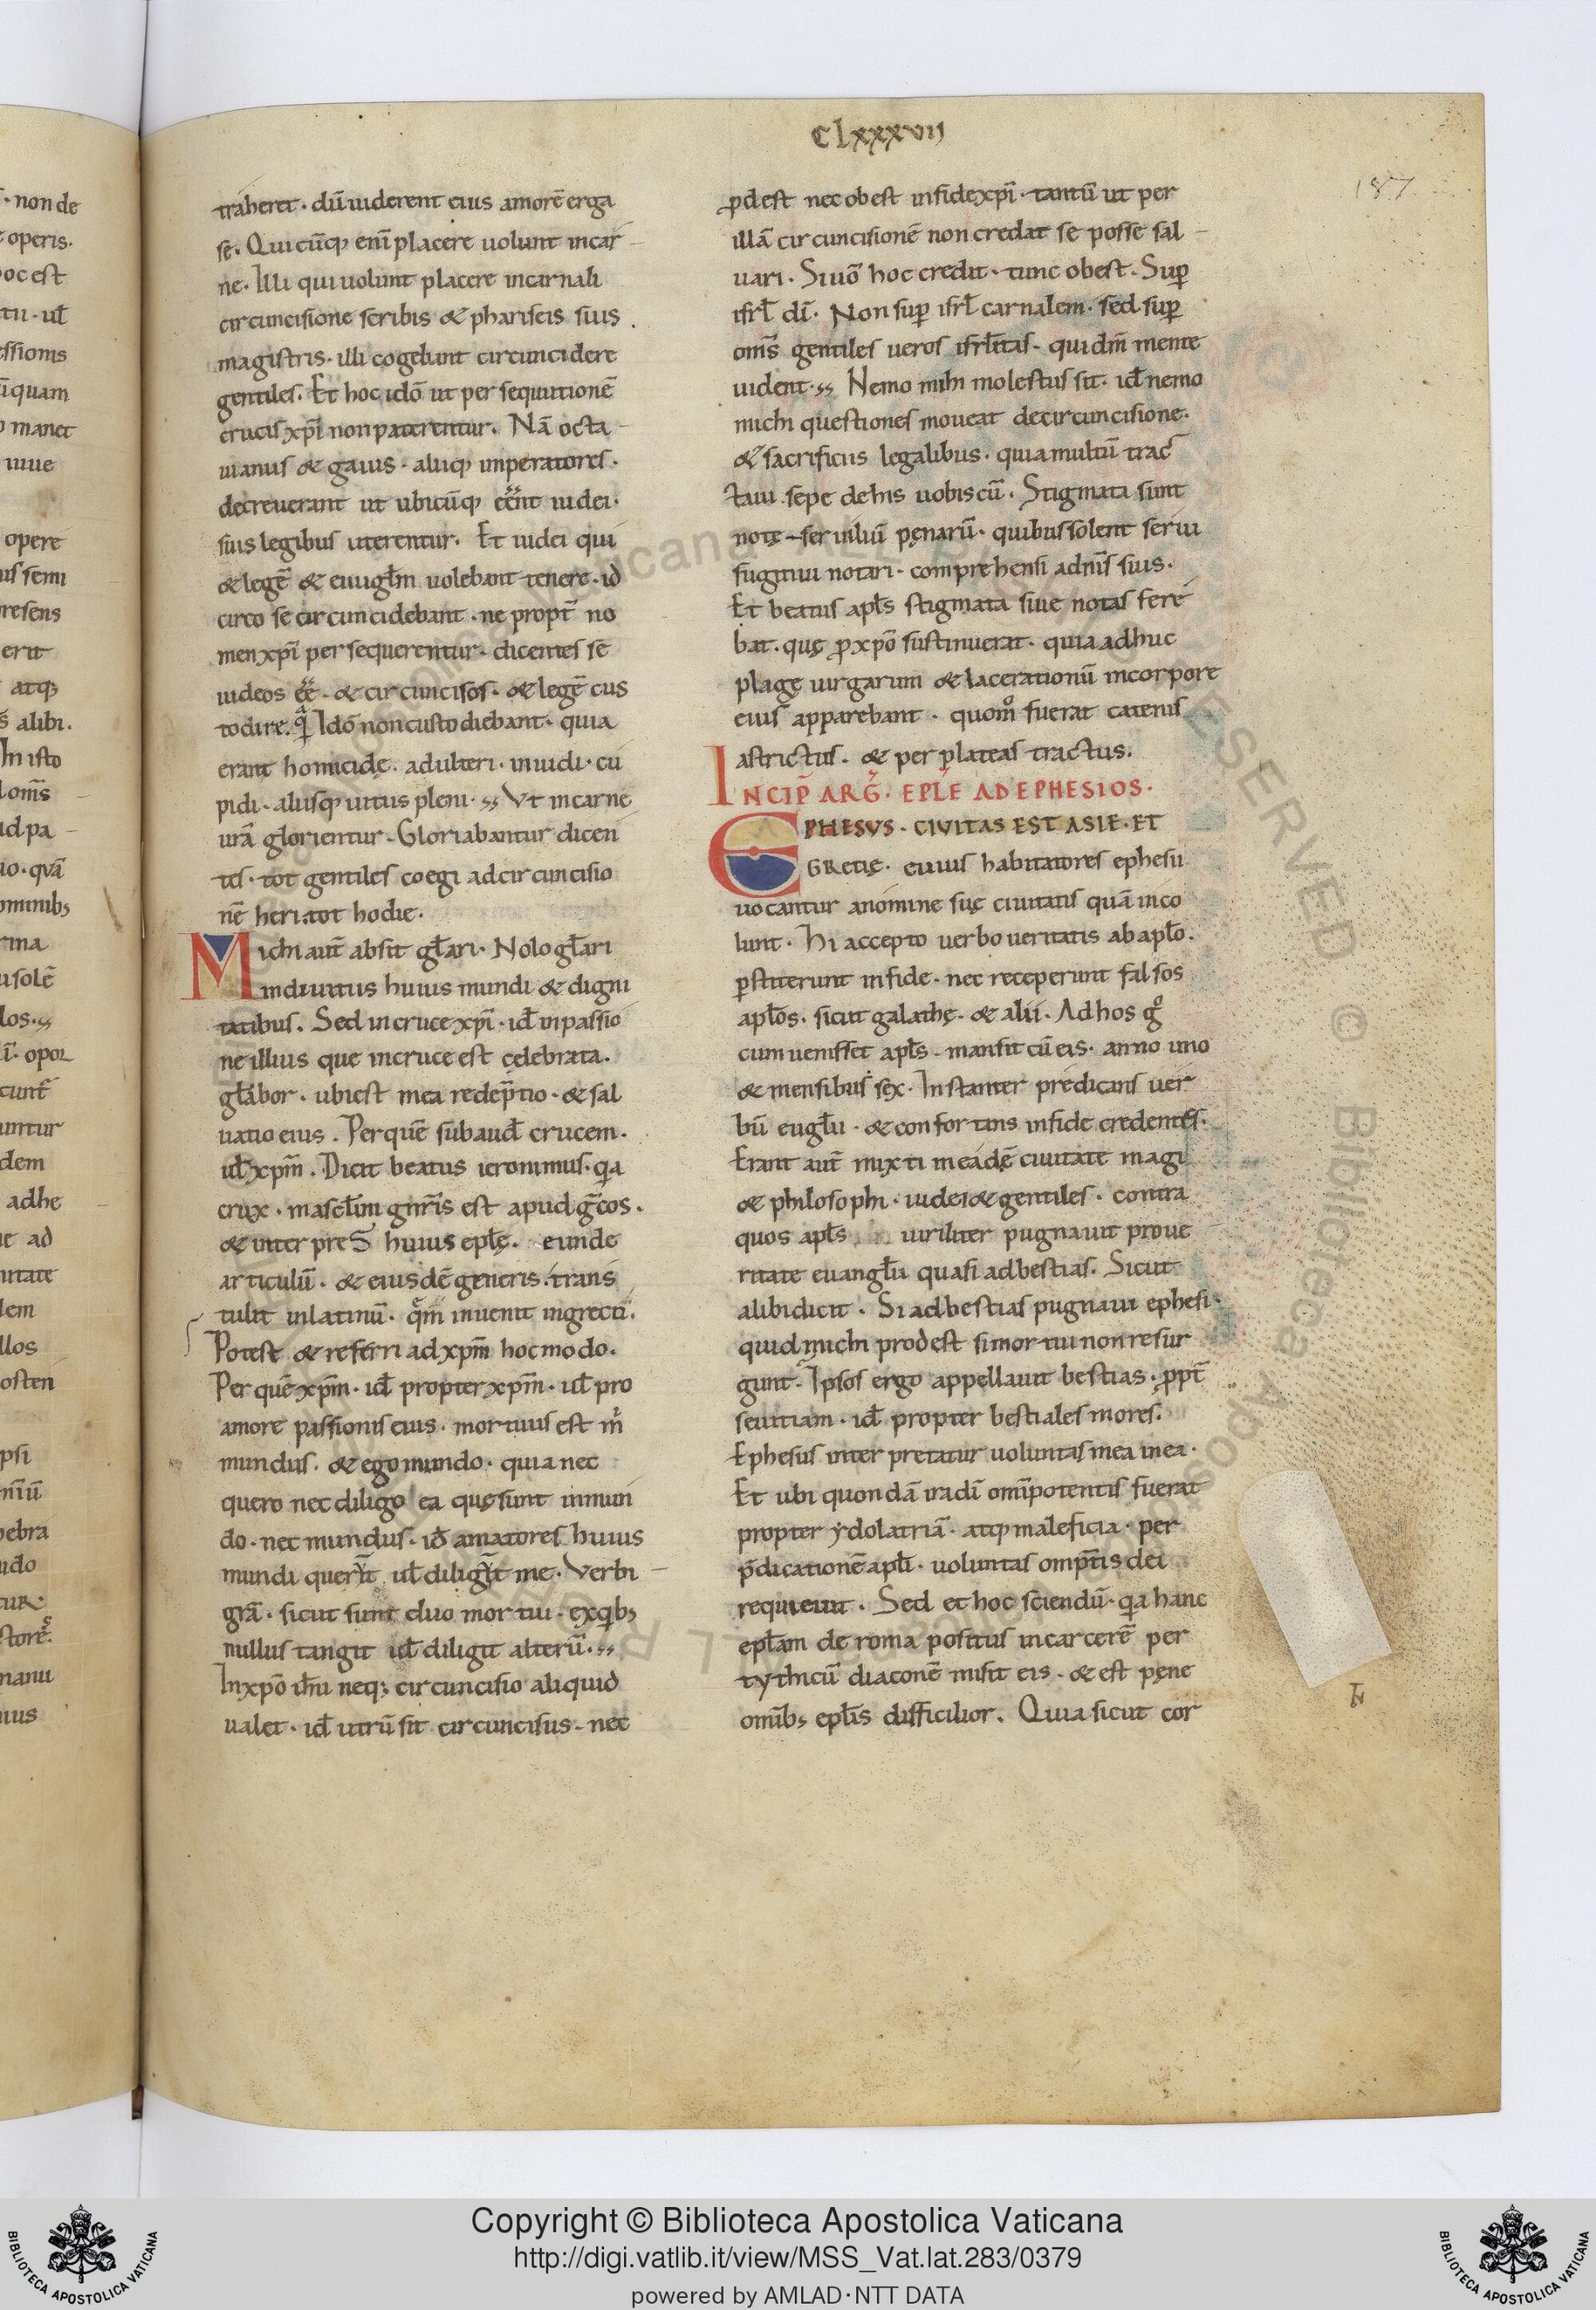 Clxxxvij
187
traheret · dū uiderent eius amorē erga
se. Quicūq; eni placere uolunt incar
ne. Illi qui uolunt placere in carnali
circuncisione scribis & phariseis suis .
magistris · illi cogebant circuncidere
gentiles. Et hoc idō ut persequutionē
crucis xpī non paterentur. Nā octa
uianus & gaius · aliiq; imperatores ·
decreuerant ut ubicūq; eent iudei ·
suis legibus uterentur. Et iudei qui
& legē & euuglm uolebant tenere · id
circo se circuncidebant · ne propt no
men xpī persequerentur · dicentes se
iudeos ee · & circuncisos · & legē cus
todire. Idō non custodiebant · quia
erant homicidę · adulteri · inuidi · cu
pidi · aliisq; uitiis pleni · Vt in carne
urā glorientur · Gloriabantur dicen
tes · tot gentiles coegi ad circuncisio
nē heri · tot hodie.
Michi aut absit glari · Nolo glari
in diuitiis huius mundi & digni
tatibus. Sed in cruce xpī · id in passio
ne illius que in cruce est celebrata.
glabor · ubi est mea redeptio · & sal
uatio eius . Per quē subaud crucem ·
ul xpm . Dicit beatus ieronimus · qa
crux · masclini gnris est apud grecos .
& interpres huius eplę. eunde
articulū · & eiusdē generis · trans
tulit in latinū · qm inuenit in greco.
Potest & referri ad xpm hoc modo.
Per quē xpm · id propter xpm · ul pro
amore passionis eius · mortuus est m
mundus. & ego mundo · quia nec
quero nec diligo ea quę sunt in mun
do · nec mundus · id amatores huius
mundi querit ul diligit me · Verbi
grā · sicut sunt duo mortui · ex qib;
nullus tangit ul diligit alterū ·
In xpō ihu neq; circuncisio aliquid
ualet · id utrū sit circuncisus · nec
pdest nec obest in fide xpī · tantū ut per
illā circuncisionē non credat se posse sal
uari · Si uō hoc credit · tunc obest · Sup
isrl dī. Non sup isrl carnalem · sed sup
oms gentiles ueros isrlitas · qui dm mente
uident · Nemo mihi molestus sit · id nemo
michi questiones moueat de circuncisione ·
& sacrificiis legalibus · quia multū trac
taui sepe de his uobiscū . Stigmata sunt
notę seruiliū pęnarū · quibus solent serui
fugitiui notari · comprehensi a dnis suis .
Et beatus apls stigmata siue notas fere
bat · quę p xpō sustinuerat · quia adhuc
plagę uirgarum & lacerationū in corpore
eius apparebant · quom fuerat catenis
astrictus. & per plateas tractus.
INCIP ARG · EPLE AD EPHESIOS ·
EPHESVS · CIVITAS EST ASIE · ET
GRETIĘ · euius habitatores ephesii
uocantur a nomine suę ciuitatis quā inco
lunt · Hi accepto uerbo ueritatis ab aplo.
pstiterunt in fide · nec receperunt falsos
aplos · sicut galathę · & alii · Ad hos g
cum uenisset apls · mansit cū eis · anno uno
& mensibus sex · Instanter predicans uer
bū euglii · & confortans in fide credentes ·
Erant aut mixti in eadē ciuitate magi
& philosophi · iudei & gentiles · contra
quos apls uiriliter pugnauit pro ue
ritate euanglii quasi ad bestias. Sicut
alibi dicit · Si ad bestias pugnaui ephesi ·
quid michi prodest si mortui non resur
gunt · Ipsos ergo appellauit bestias · ppt
seuitiam · id propter bestiales mores.
Ephesus interpretatur uoluntas mea in ea ·
Et ubi quondā ira dī omipotentis fuerat
propter ydolatriā · atq; maleficia · per
pdicationē apli · uoluntas omptis dei
requieuit · Sed et hoc sciendū · qa hanc
eplam de roma positus in carcere per
tythicū diaconē misit eis · & est pęne
omib; eplis difficilior. Quia sicut cor
· non de
operis.
oc est
opere
adhe
Copyright © Biblioteca Apostolica Vaticana
http://digi.vatlib.it/view/MSS_Vat.lat.283/0379
powered by AMLAD·NTT DATA
BIBLIOTECA APOSTOLICA VATICANA
BIBLIOTECA APOSTOLICA VATICANA